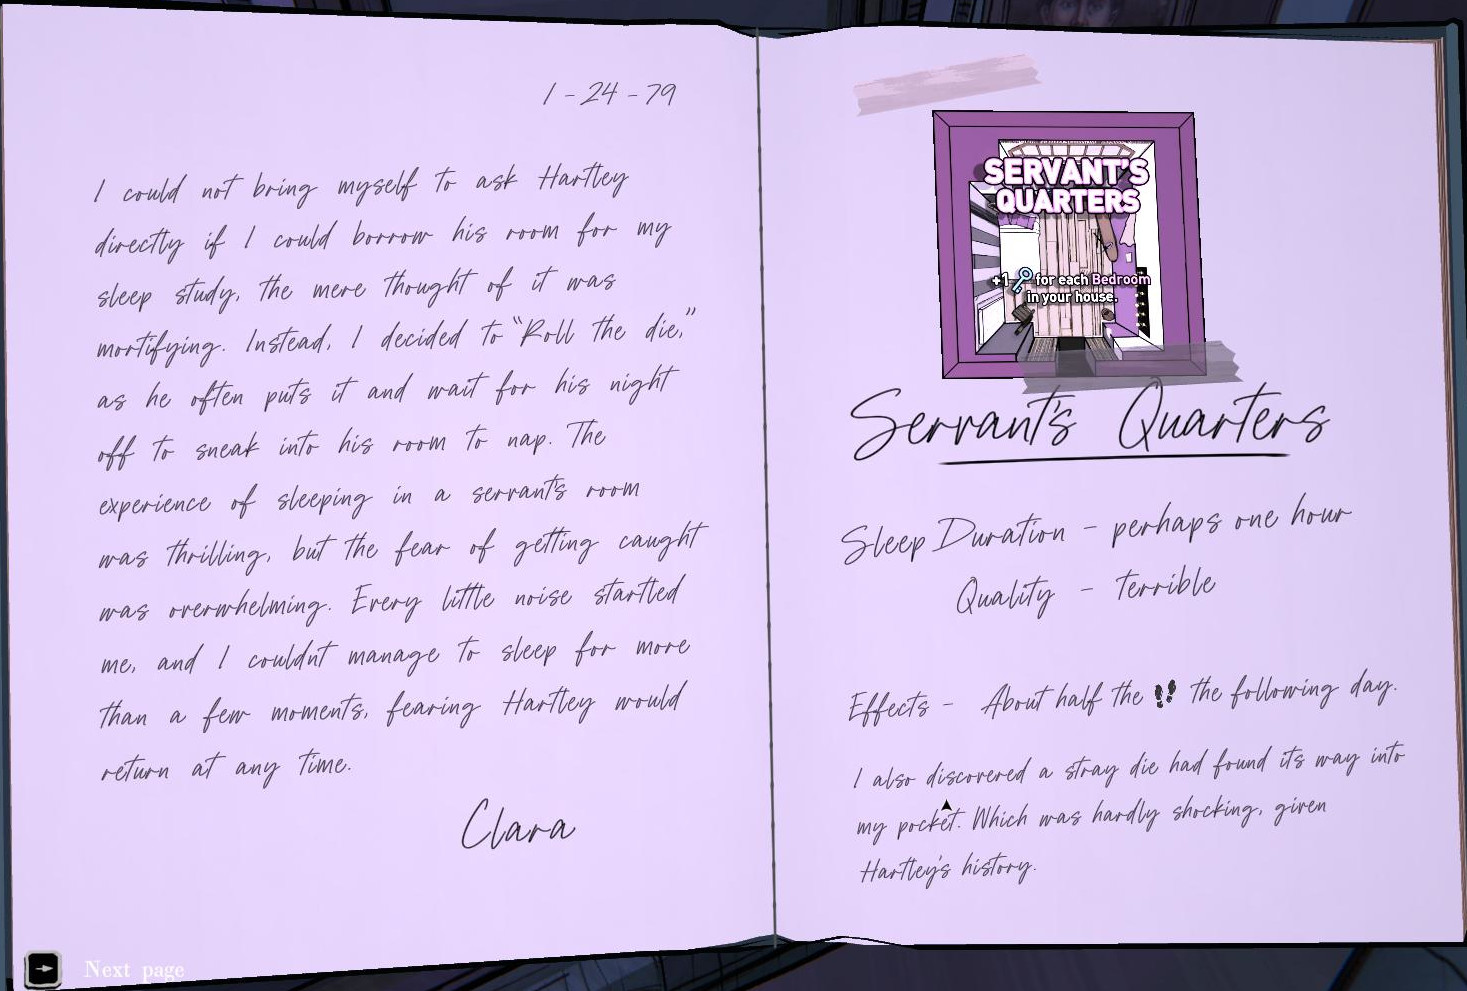 1-24-79
I could not bring myself to ask Hartley
directly if I could borrow his room for my
sleep study, the mere thought of it was
mortifying. Instead, I decided to "Roll the die,"
as he often puts it and wait for his night
off to sneak into his room to nap. The
experience of sleeping in a servant's room
was thrilling, but the fear of getting caught
was overwhelming. Every little noise startled
me, and I couldn't manage to sleep for more
than a few moments, fearing Hartley would
return at any time.
Clara
Next page
SERVANT'S
QUARTERS
+1 for each Bedroom
in your house.
Servant's Quarters
Sleep Duration - perhaps one hour
Quality - terrible
Effects - About half the the following day.
I also discovered a stray die had found its way into
my pocket. Which was hardly shocking, given
Hartley's history.